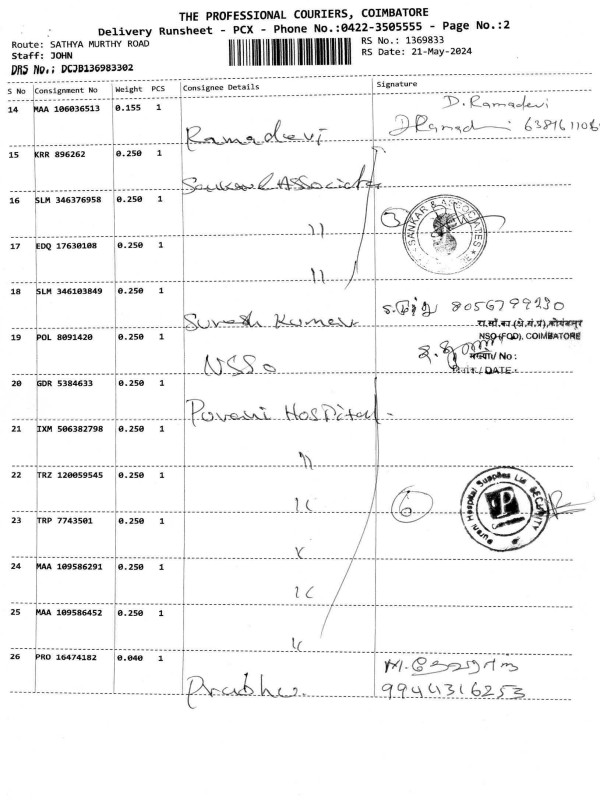 THE PROFESSIONAL COURIERS, COIMBATORE
Delivery Runsheet - PCX - Phone No.:0422-3505555 - Page No.:2
Route: SATHYA MURTHY ROAD RS No.: 1369833
Staff: JOHN RS Date: 21-May-2024
DRS No.: DCJB136983302
S No Consignment No Weight PCS Consignee Details Signature
14 MAA 106036513 0.155 1 D.Ramadevi
Ramadevi
15 KRR 896262 0.250 1
Sankar & Associates
16 SLM 346376958 0.250 1
" 3 SANKAR & ASSOCIATES
17 EDQ 17630108 0.250 1
"
18 SLM 346103849 0.250 1
Suresh Kumar 8056799230
रा.सां.का.(क्षे.सं.प्र),कोयंबत्तूर
19 POL 8091420 0.250 1 NSO(FOD), COIMBATORE
NSSO संख्या/ No :
दिनांक / DATE :
20 GDR 5384633 0.250 1
Purani Hospital.
21 IXM 506382798 0.250 1
"
22 TRZ 120059545 0.250 1
" 6 Purani Hospital Supplies Ltd SECURITY
P
Coimbatore
23 TRP 7743501 0.250 1
"
24 MAA 109586291 0.250 1
"
25 MAA 109586452 0.250 1
"
26 PRO 16474182 0.040 1
Prabhu. 9944316253